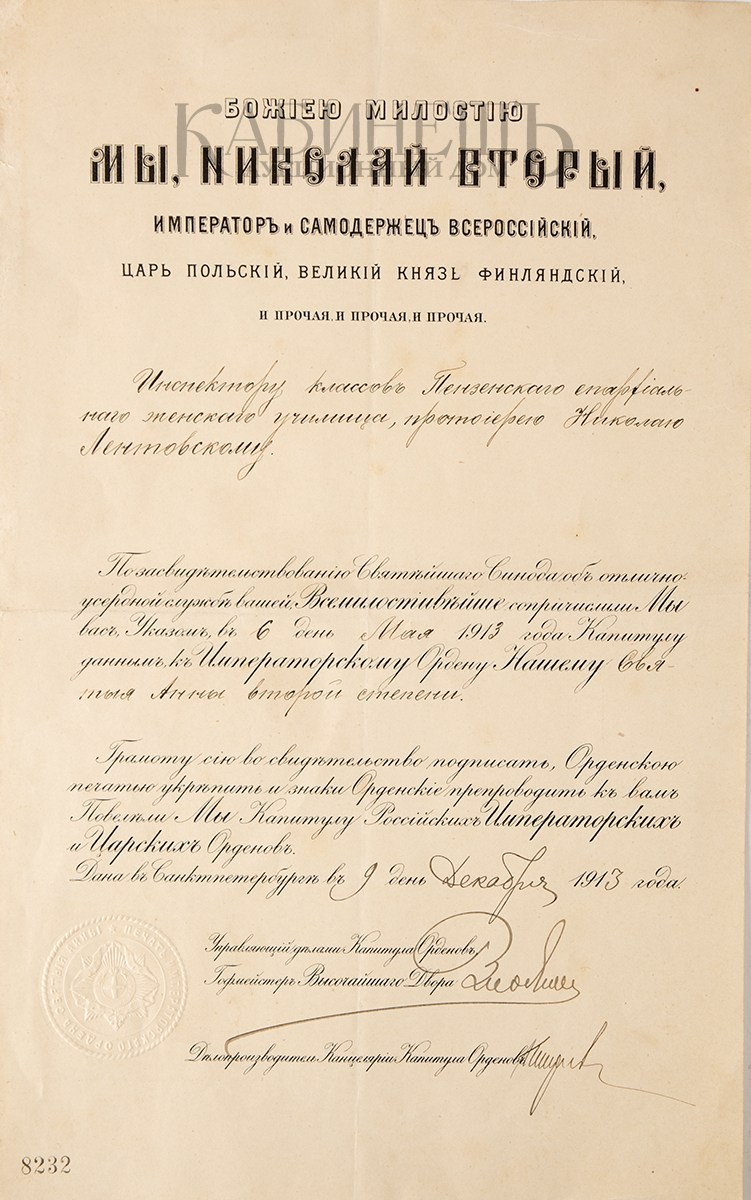 БОЖІЕЮ МИЛОСТІЮ
КАБИНЕТЪ
МЫ, НИКОЛАЙ ВТОРЫЙ,
ИМПЕРАТОРЪ и САМОДЕРЖЕЦЪ ВСЕРОССІЙСКІЙ,
ЦАРЬ ПОЛЬСКІЙ, ВЕЛИКІЙ КНЯЗЬ ФИНЛЯНДСКІЙ,
И ПРОЧАЯ, И ПРОЧАЯ, И ПРОЧАЯ.
Инспектору классовъ Пензенскаго епархіаль-
наго женскаго училища, протоіерею Николаю
Лентовскому.
По засвидѣтельствованію Святѣйшаго Синода объ отлично-
усердной службѣ вашей, Всемилостивѣйше сопричислили Мы
васъ, Указомъ, въ 6 день Мая 1913 года Капитулу
даннымъ, къ Императорскому Ордену Нашему Свя-
тыя Анны второй степени.
Грамоту сію во свидѣтельство подписать, Орденскою
печатью укрѣпить и знаки Орденскіе препроводить къ вамъ
Повелѣли Мы Капитулу Россійскихъ Императорскихъ
и Царскихъ Орденовъ.
Дана въ Санктпетербургѣ въ 9 день Декабря 1913 года.
Управляющій дѣлами Капитула Орденовъ,
Гофмейстеръ Высочайшаго Двора
Дѣлопроизводитель Канцеляріи Капитула Орденовъ
8232